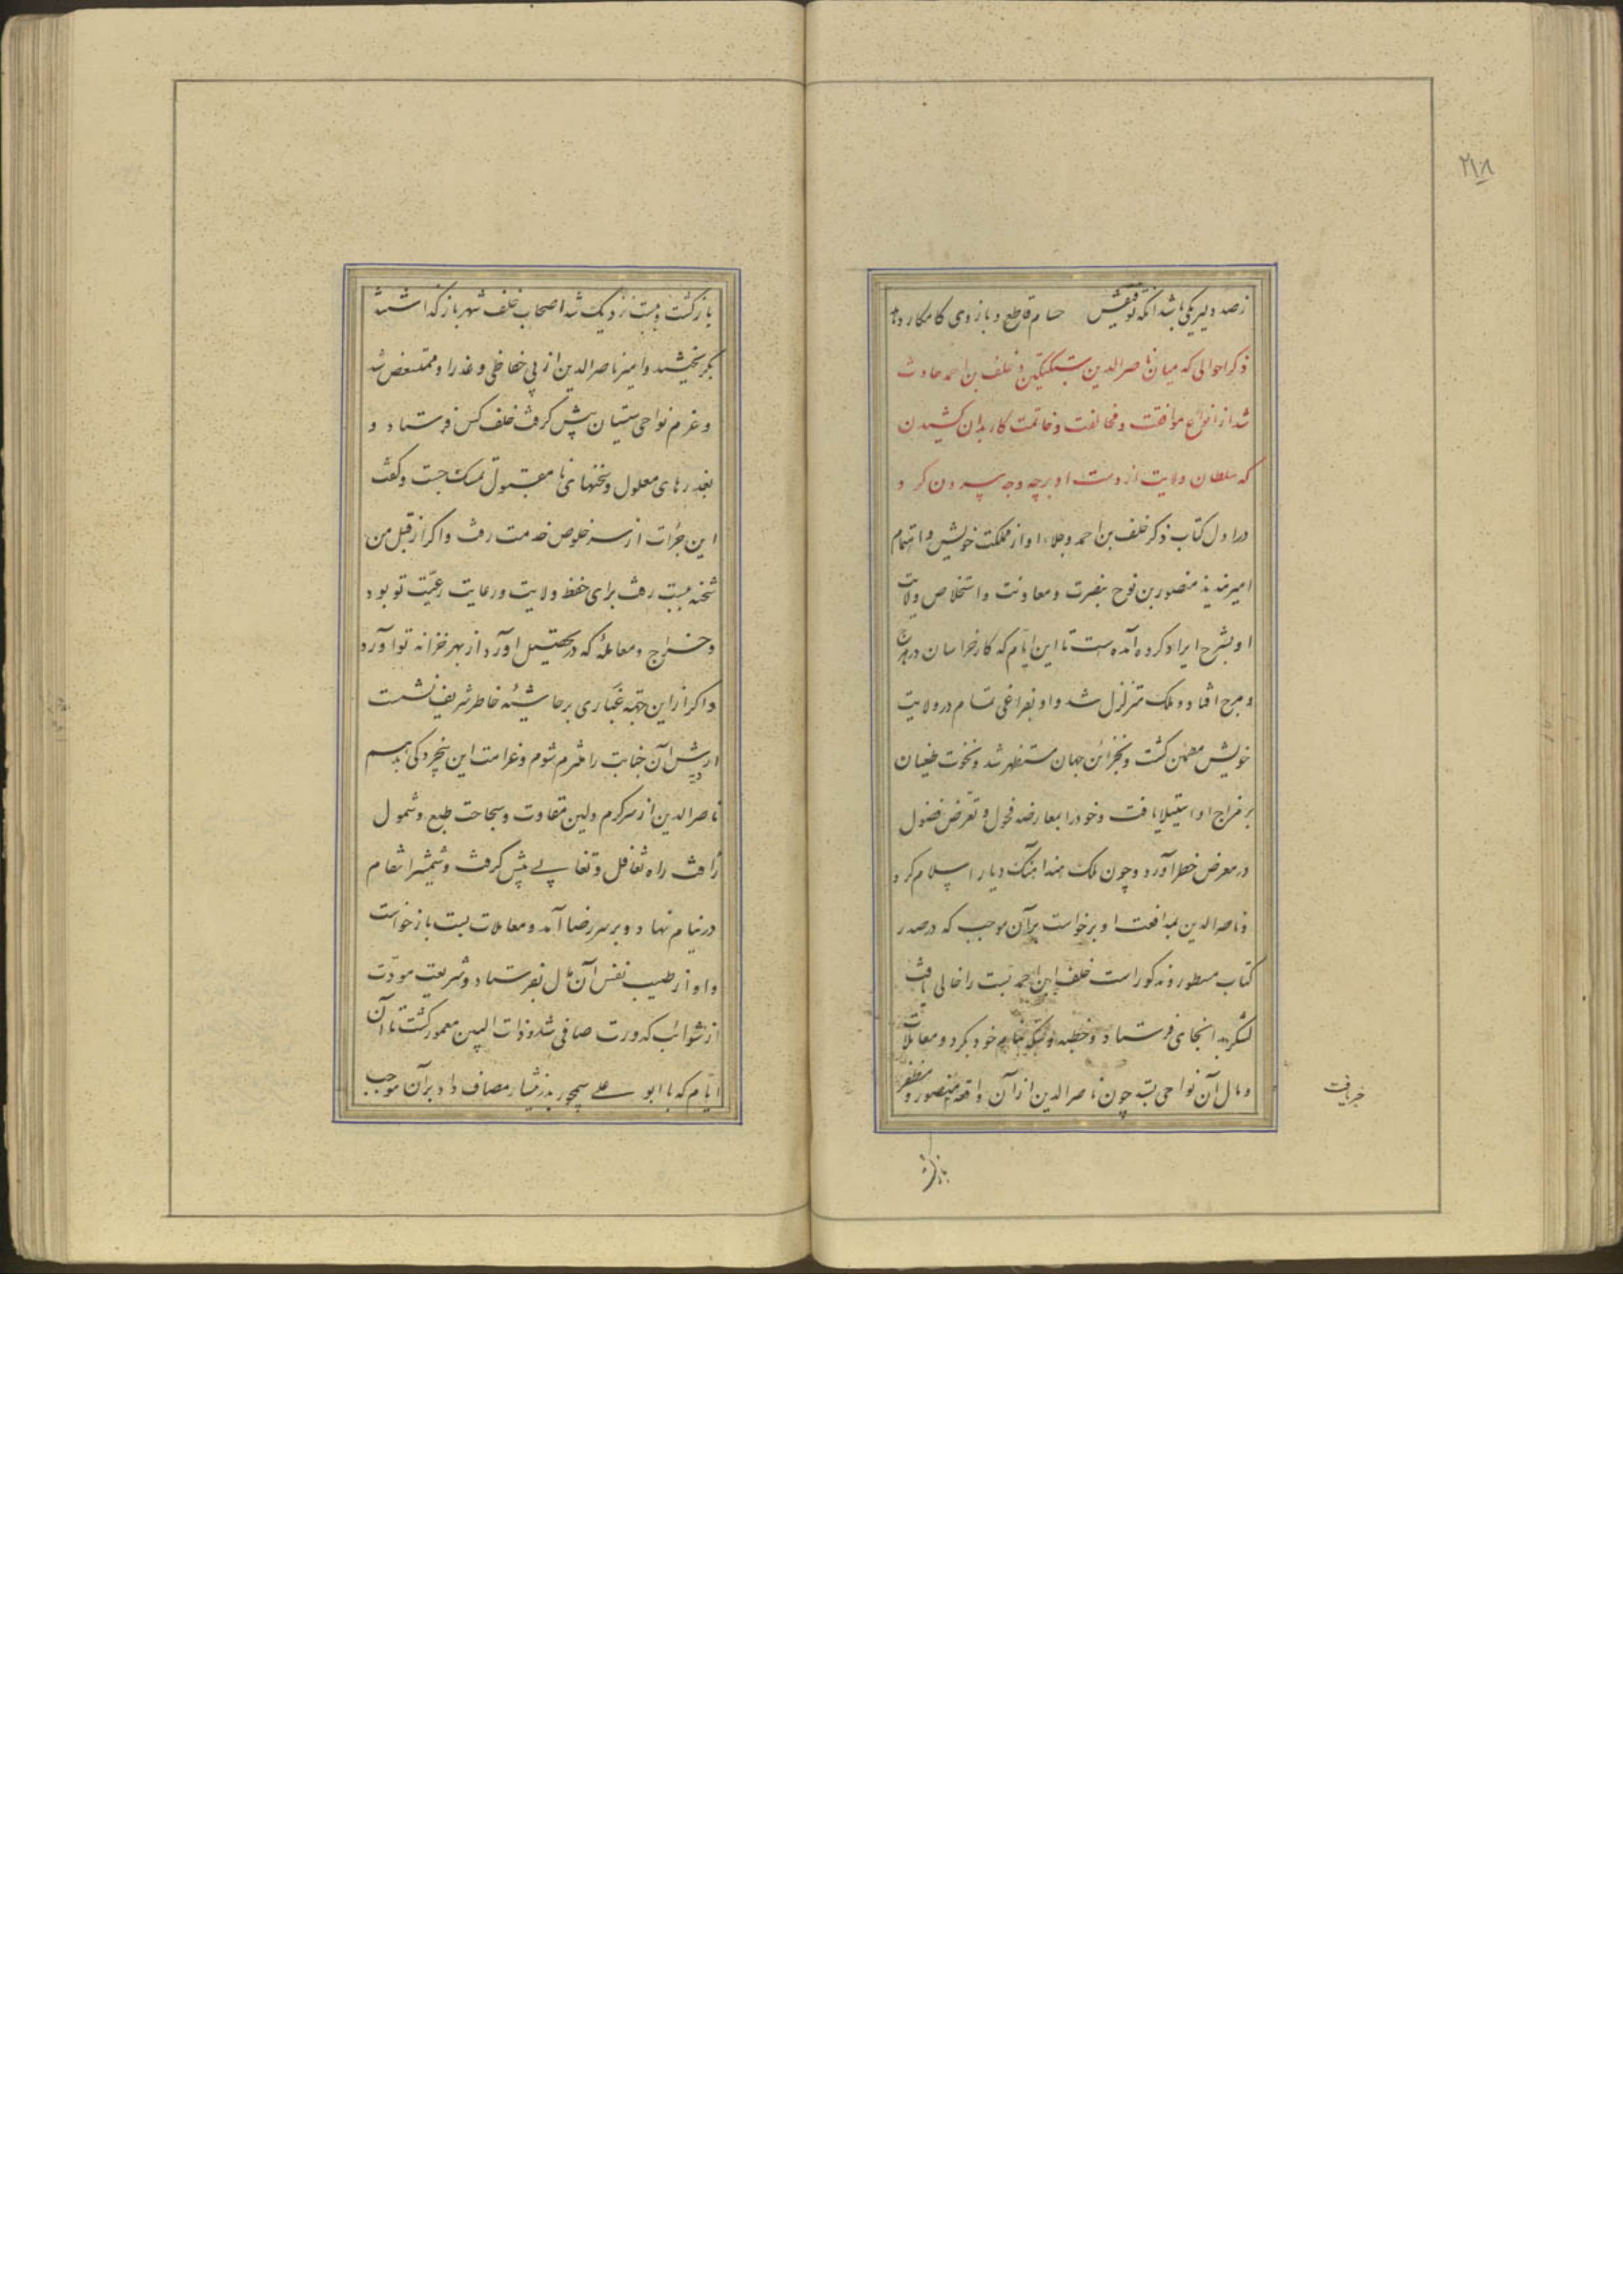 ۲۱۸
ز صد دلیر یکی باشد آنکه توفیقش حسام قاطع و بازوی کامکار دهد
ذکر احوالی که میان ناصرالدین سبکتکین و خلف بن احمد حادث
شد از انواع موافقت و مخالفت و خاتمت کار بدان کشیدن
که سلطان ولایت از دست او بر چه وجه بیرون کرد
در اول کتاب ذکر خلف بن احمد و جلاء او از مملکت خویش و اهتمام
امیر سدید منصور بن نوح بنصرت و معاونت و استخلاص ولایت
او بشرح ایراد کرده آمده است تا این ایام که کار خراسان در هرج
و مرج افتاد و ملک متزلزل شد و او بفراغی تمام در ولایت
خویش مطمئن گشت و بخزائن جهان مستظهر شد و نخوت طغیان
بر مزاج او استیلا یافت و خود را بمعارضه فحول و تعرض فضول
در معرض خطر آورد و چون ملک هند آهنگ دیار اسلام کرد
و ناصرالدین بمدافعت او برخواست بر آن موجب که در صدر
کتاب مسطور و مذکور است خلف ابن احمد بست را خالی یافت
لشکر بدانجای فرستاد و خطبه و سکه بنام خود بکرد و معاملات
و مال آن نواحی بستد چون ناصرالدین از آن واقعه منصور و مظفر
خبر یافت
بازگشت
بازگشت و ببست نزدیک شد اصحاب خلف شهر باز گذاشتند
بگریختند و امیر ناصرالدین از بی حفاظی و غدر او ممتعض شد
و عزم نواحی سیستان پیش گرفت خلف کس فرستاد و
بعذرهای معلول و سخنهای نامقبول تمسک جست و گفت
این جرأت از سر خلوص خدمت رفت و اگر از قبل من
شحنه ببست رفت برای حفظ ولایت و رعایت رعیّت تو بود
و خراج و معامله که در تحصیل آورد از بهر خزانه تو آورد
و اگر از این جهة غباری بر حاشیه خاطر شریف نشست
ارش آن جنایت را ملتزم شوم و غرامت این بیخردگی بدهم
ناصرالدین از سر کرم و لین مقاوت و سجاحت طبع و شمول
رأفت راه تغافل و تغابی پیش گرفت و شمشیر انتقام
در نیام نهاد و بر سر رضا آمد و معاملات بست باز خواست
و او از طیب نفس آن مال بفرستاد و شریعت مودّت
از شوائب کدورت صافی شد و ذات البین معمور گشت تا آن
ایّام که با ابو علی سیمجور بدر نیشابور مصاف داد بر آن موجب